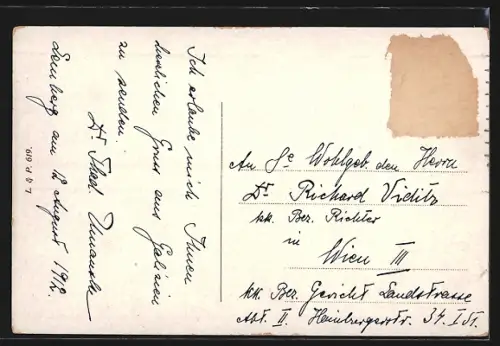 Ich erlaube mich Ihnen
herzlichen Gruss aus Galizien
zu senden.
Dr Thad.
Lemberg am 12 August 1912.
L. & P. 619.
An Se Wohlgeb. den Herrn
Dr Richard Viditz
kk. Bez. Richter
in
Wien III
kk. Bez. Gericht Landstrasse
Abt. II. Hainburgerstr. 34. I St.